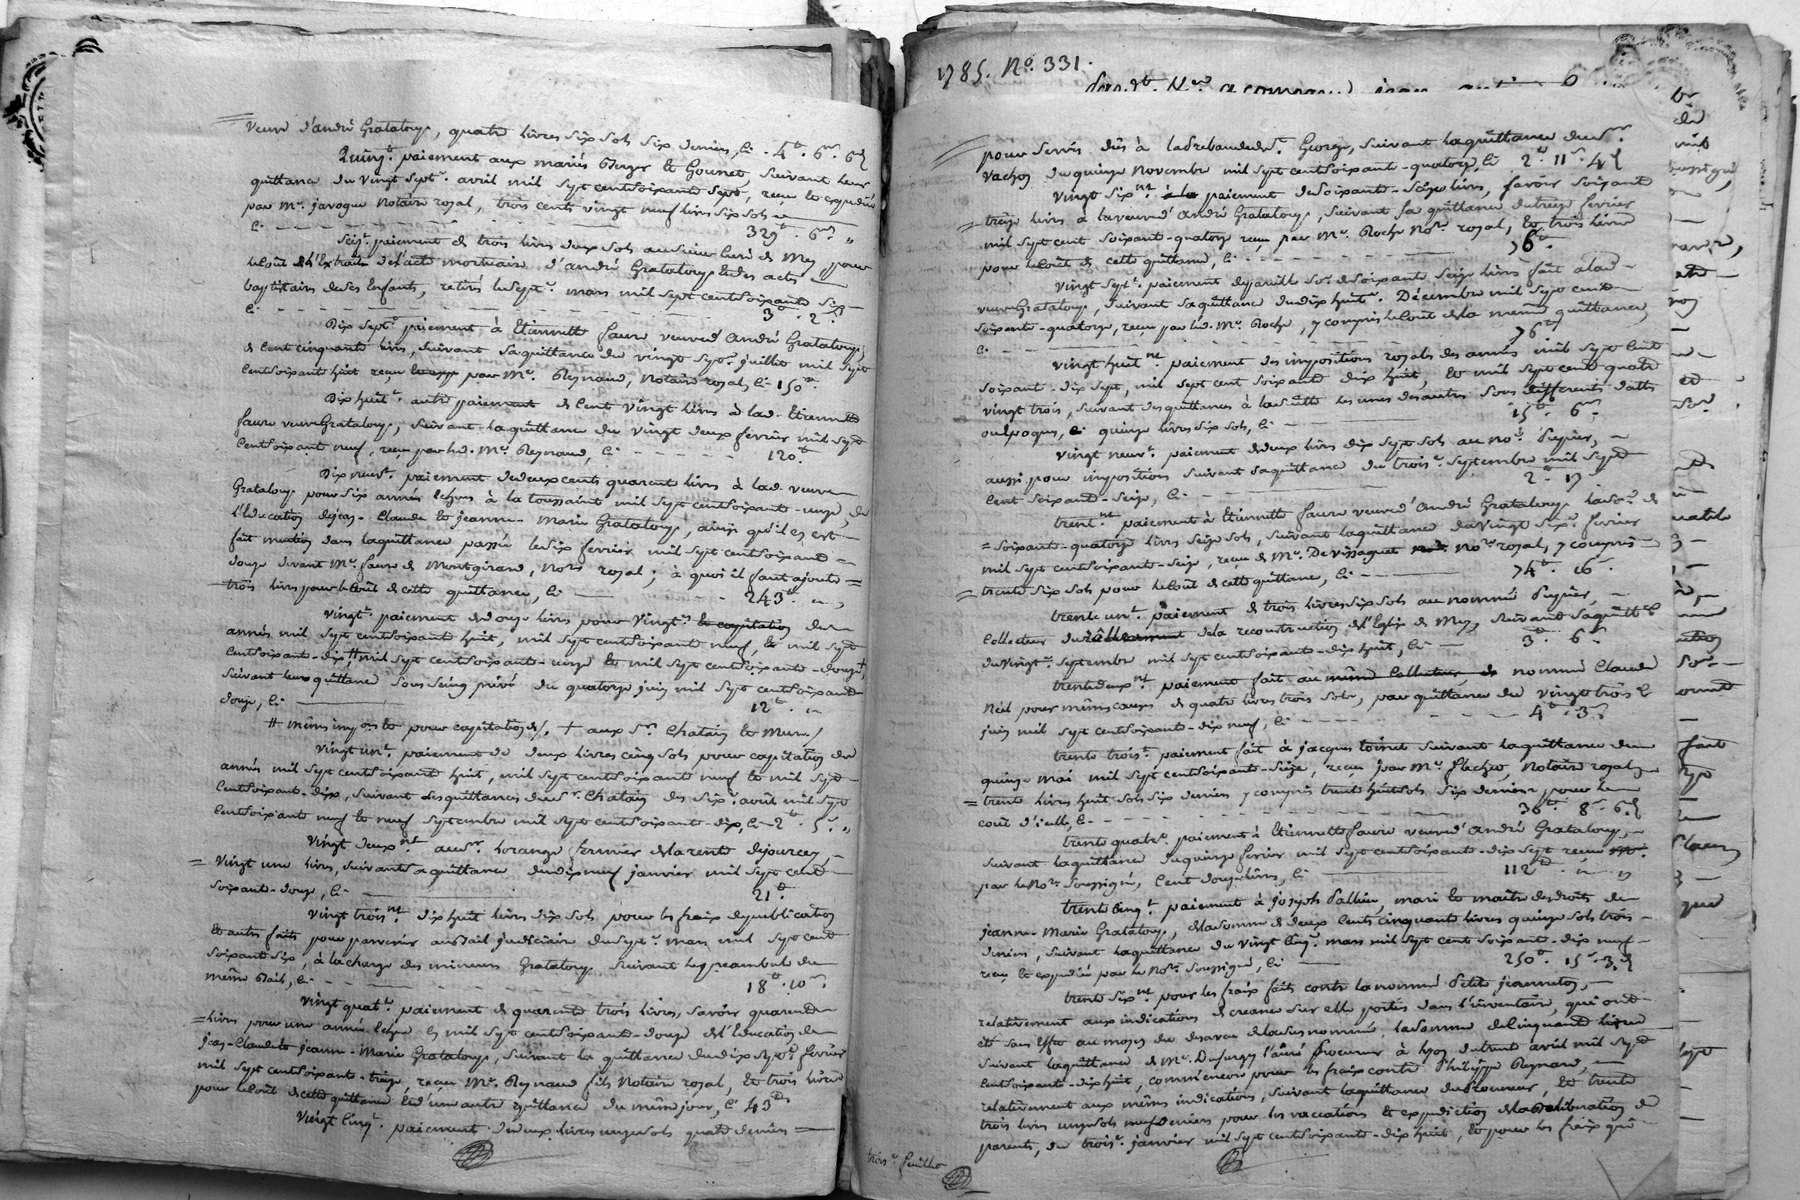 veuve d'andré Grataloup, quatre livres six sols six deniers, Ci - 4ᵗᵗ. 6ˢ. 6ᵈ
Quinzᵉ. paiement aux mariés Berger et Gounet, suivant leur
quittance du vingt septᵉ. avril mil sept centsoixante sept, reçue et expédiée
par Mᵉ. javogue Notaire royal, trois cents vingt neuf livres six sols
Ci - 329ᵗᵗ. 6ˢ. "
Seizᵉ. paiement de trois livres deux sols au sieur Curé de Mey, pour
le Coût de l'Extrait de l'acte mortuaire d'andré Grataloup et des actes
baptistaires de ses Enfants, retirés le septᵉ. mars mil sept centsoixante six
Ci - 3ᵗᵗ. 2ˢ.
Dix septᵉ. paiement à Etiennette faure veuve d'andré Grataloup,
de Cent cinquante livres, suivant sa quittance du vingt septᵉ. juillet mil sept
Centsoixante huit reçue par Mᵉ. Reynaud, Notaire royal, Ci 150ᵗᵗ.
Dix huitᵉ. autre paiement de Cent vingt livres à lad. Etiennette
faure veuve Grataloup, suivant la quittance du vingt deux fevrier mil sept
Centsoixante neuf, reçue par led. Mᵉ. Reynaud, Ci - 120ᵗᵗ.
Dix neufᵉ. paiement de deux cents quarante livres à lad. veuve
Grataloup pour six années échues à la toussaint mil sept centsoixante-onze, de
l'Education de jean-Claude et jeanne-Marie Grataloup, ainsi qu'il en est
fait mention dans la quittance passée le six fevrier mil sept centsoixante
douze devant Mᵉ. faure de Montgirard, Noʳᵉ royal; à quoi il faut ajouter
trois livres pour le Coût de cette quittance, Ci - 243ᵗᵗ. "
Vingtᵉ. paiement de douze livres pour vingtᵐᵉ et capitation des
années mil sept centsoixante huit, mil sept centsoixante neuf, et mil sept
Centsoixante-dix, # mil sept centsoixante-onze et mil sept centsoixante-douze, +
suivant leurs quittances sous seing privé du quatorze juin mil sept centsoixante
douze, Ci - 12ᵗᵗ. "
# mêmes impᵒⁿˢ et pour capitation /. + aux Sʳˢ. Chatain et Mure /
Vingt unᵉ. paiement de deux livres cinq sols pour capitation des
années mil sept centsoixante huit, mil sept centsoixante neuf et mil sept
Centsoixante-dix, suivant les quittances du Sʳ. Chatain des sixᵉ. août mil sept
Centsoixante neuf et neuf septembre mil sept centsoixante-dix, Ci - 2ᵗᵗ. 5ˢ. "
Vingt deuxᵐᵗ. au Sʳ. Lorange fermier de la rente de jourcey,
vingt une livres, suivant sa quittance du dix neuf janvier mil sept cent
soixante-douze, Ci - 21ᵗᵗ
Vingt troisᵐᵗ. dix huit livres dix sols pour les fraix de publication
et autres faits pour parvenir au Bail judiciaire du septᵉ. mars mil sept cent
soixante six, à la charge des mineurs Grataloup suivant le préambule du
même Bail, Ci - 18ᵗᵗ. 10ˢ
Vingt quatᵉ. paiement de quarante trois livres, savoir quarante
livres pour une année échue en mil sept centsoixante-douze de l'Education de
jean-Claude et jeanne-Marie Grataloup, suivant la quittance du dix septᵉ. fevrier
mil sept centsoixante-treize, reçue Mᵉ. Reynaud fils Notaire royal, et trois livres
pour le Coût de cette quittance et d'une autre quittance du même jour, Ci 43ᵗᵗ
Vingt cinqᵉ. paiement de deux livres onze sols quatre deniers
1785. Nº. 331.
pour servis dûs à la dᵉ George, suivant la quittance du Sʳ.
Vachon du quinze Novembre mil sept centsoixante-quatorze, Ci 2ᵗᵗ 11ˢ. 4ᵈ
Vingt sixᵐᵗ. paiement de soixante-seize livres, savoir soixante
treize livres à la veuve d'andré Grataloup, suivant sa quittance du treize fevrier
mil sept cent soixante-quatorze reçue par Mᵉ. Roche Noʳᵉ. royal, et trois livres
pour le Coût de cette quittance, Ci - 76ᵗᵗ.
Vingt septᵉ. paiement de pareille Soᵉ. de soixante seize livres fait à lad.
veuve Grataloup, suivant sa quittance du dix huitᵉ. Décembre mil sept cent
soixante-quatorze, reçue par led. Mᵉ. Roche, y compris le Coût de la même quittance,
Ci - 76ᵗᵗ
Vingt huitᵐᵗ. paiement des impositions royales des années mil sept cent
soixante-dix sept, mil sept cent soixante dix huit, et mil sept cent quatre
vingt trois, suivant des quittances à la suite les unes des autres sous différents dattes
ou époques, quinze livres six sols, Ci - 15ᵗᵗ. 6ˢ.
Vingt neufᵉ. paiement de deux livres dix sept sols au noᵉ. Pupier,
aussi pour impositions suivant sa quittance du troisᵉ. septembre mil sept
Cent soixante-seize, Ci - 2ᵗᵗ. 17
trentᵐᵗ. paiement à Etiennette faure veuve d'andré Grataloup la soᵉ. de
soixante-quatorze livres seize sols, suivant la quittance du vingt sixᵉ. fevrier
mil sept centsoixante-seize, reçue de Mᵉ. Devissaguet noʳᵉ royal, y compris
trente six sols pour le Coût de cette quittance, Ci - 74ᵗᵗ. 16ˢ.
trente unᵉ. paiement de trois livres six sols au nommé Pupier,
Collecteur de la reconstruction de l'Eglise de Mey, suivant sa quittᵉ
du vingtᵉ. septembre mil sept centsoixante-dix huit, Ci - 3ᵗᵗ. 6ˢ
trente deuxᵐᵗ. paiement fait au nommé Claude
Néel pour même cause de quatre livres trois sols, par quittance du vingt trois
juin mil sept centsoixante-dix neuf, Ci - 4ᵗᵗ. 3ˢ
trente troisᵉ. paiement fait à jacques toinet suivant la quittance du
quinze mai mil sept centsoixante-seize, reçue par Mᵉ. Flachat, Notaire royal
trente livres huit sols six deniers y compris trente huit sols six deniers pour le
coût d'icelle, Ci - 36ᵗᵗ. 8ˢ. 6ᵈ
trente quatrᵉ. paiement à Etiennette faure veuve d'andré Grataloup,
suivant la quittance du quinze fevrier mil sept centsoixante-dix sept reçue
par le Noʳᵉ. Soussigné, Cent douze livres, Ci - 112ᵗᵗ " "
trente cinqᵉ. paiement à joseph Pallieu, mari et maître des droits de
jeanne-Marie Grataloup, de la somme de deux Cents cinquante livres quinze sols trois
deniers, suivant la quittance du vingt cinqᵉ. mars mil sept cent soixante-dix neuf
reçue et expédiée par le Noʳᵉ. Soussigné, Ci - 250ᵗᵗ. 15ˢ. 3ᵈ
trente sixᵐᵗ. pour les fraix faits contre la nommée Petite jeanneton,
relativement aux indications de créance sur elle portées dans l'inventaire, qui ont
été sans effet au moyen du désaveu de la dᵉ nommée, la somme de Cinquante livres
suivant la quittance de Mᵉ. Dufurgy l'aîné Procureur à Lyon du trente avril mil sept
Centsoixante-dix huit, comme encore pour les fraix contre Philippe Reynaud,
relativement aux mêmes indications, suivant la quittance du Procureur, et trente
trois livres onze sols neuf deniers pour les vacations et expédition de la délibération de
parents, du troisᵉ. janvier mil sept centsoixante-dix huit, et pour les fraix qui
troisᵉ. feuille